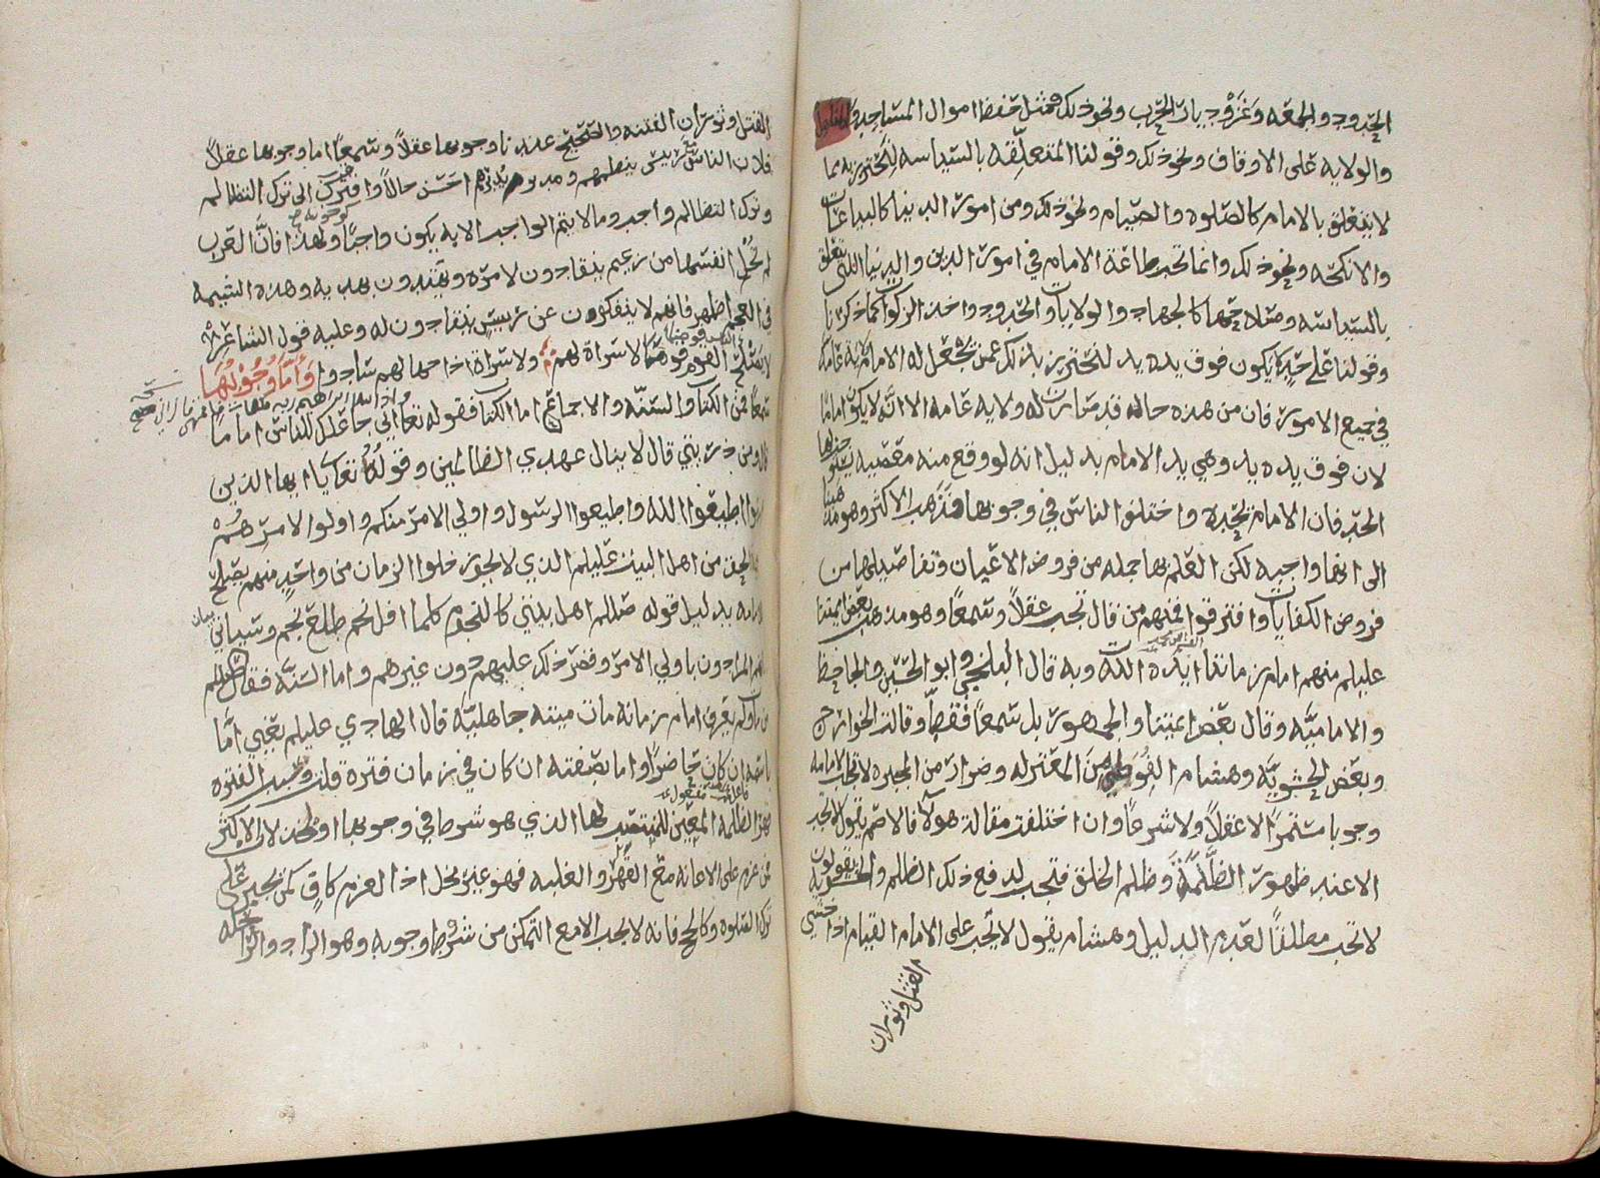 الحدود والجمعه وغزو ديار الحرب ونحو ذلك ومثل حفظ اموال المساجد والمناهل
والولايه على الاوقاف ونحو ذلك وقولنا المتعلقه بالسياسه لنحترز به مما
لا يتعلق بالامام كالصلوه والصيام ونحو ذلك ومن امور الدنيا كالبياعات
والانكحه ونحو ذلك وانما تجب طاعة الامام في امور الدين والدنيا اللتي تتعلق
بالسياسه وصلاحها كالجهاد والولايات والحدود واخذ الزكوات كما ذكرنا
وقولنا على حد لا يكون فوق يده يد لنحترز بذلك عمن يجعل له الامام ولاية عامة
في جميع الامور فان من هذه حاله قد صارت له ولايه عامه الا انه لا يكون اماما
لان فوق يده يد وهي يد الامام بدليل انه لو وقع منه معصيه يستوجب بها
الحد فان الامام يحده واختلف الناس في وجوبها فذهب الاكثر وهو مذهبنا
الى انها واجبه لكن العلم بها جمله من فروض الاعيان وتفاصيلها من
فروض الكفايات وافترقوا فمنهم من قال تجب عقلاً وسمعاً وهو مذهب بعض ائمتنا
عليلم منهم امام زماننا ايده الله وبه قال البلخي وابو الحسين والجاحظ
والاماميه وقال بعض ائمتنا والجمهور بل سمعاً فقط وقالت الخوارج
وبعض الحشويه وهشام الفوطي من المعتزله وضرار من المجبره لا تجب الامامه
وجوبا مستمراً لا عقلاً ولا شرعاً وان اختلفت مقالة هولا فالاصم يقول لا تجب
الا عند ظهور الظلمة وظلم الخلق فتجب لدفع ذلك الظلم والحشويه يقولون
لا تجب مطلقاً لعدم الدليل وهشام يقول لا يجب على الامام القيام اذا خشي
القتل وثوران
القتل وثوران الفتنه والصحيح عندنا وجوبها عقلاً وسمعاً اما وجوبها عقلاً
فلان الناس مع رئيس ينظمهم ومدبر احسن حالاً واقرب الى ترك التظالم
وترك التظالم واجب وما لا يتم الواجب الا به يكون واجباً كوجوبه ولهذا فان العرب
لم تخل انفسها من زعيم ينقادون لامره ويقتدون بهديه وهذه الشيمه
في العجم اظهر فانهم لا ينفكون عن رئيس ينقادون له وعليه قول الشاعر
لا يصلح القوم فوضى لا سراة لهم ولا سراة اذا جهالهم سادوا واما وجوبها
سمعا فمن الكتاب والسنه والاجماع اما الكتاب فقوله تعالى اني جاعلك للناس اماما
قال ومن ذريتي قال لا ينال عهدي الظالمين وقوله تعالى يا ايها الذين
امنوا اطيعوا الله واطيعوا الرسول واولي الامر منكم واولوا الامر هم
من اهل البيت عليلم الذي لا يجوز خلوا الزمان من واحد منهم يصلح
بدليل قوله صللم اهل بيتي كالنجوم كلما افل نجم طلع نجم وسياتي بيان
انهم المرادون باولي الامر وقصر ذلك عليهم دون غيرهم واما السنه فقال صللم
من مات ولم يعرف امام زمانه مات ميتة جاهليه قال الهادي عليلم يعني اما
باسمه ان كان حاضراً واما بصفته ان كان في زمان فترة قلت وسبب الفتره
قهر الظلمه المعين للمنتصب لها الذي هو شرط في وجوبها او لخذلان الاكثر
عن عزم على الاعانه مع القهر والغلبه فهو غير مخل اذا العزم كاف كمن يجبر على
ترك الصلوه وكالحج فانه لا يجب الا مع التمكن من شرط وجوبه وهو الزاد والراحله